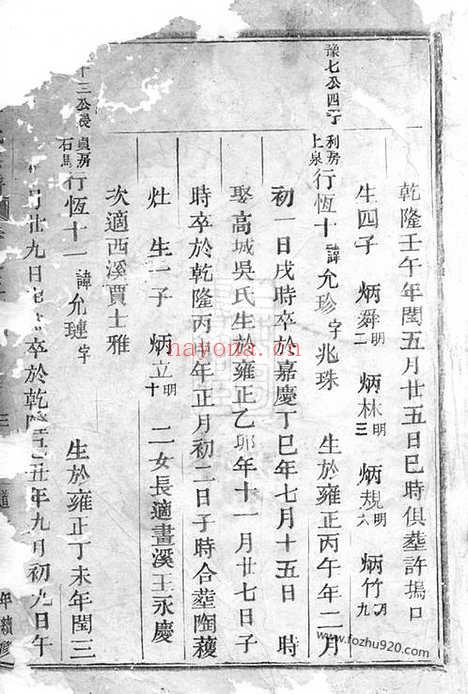 乾隆壬午年閏五月廿五日巳時俱塟許塢口
生四子 炳舜明二 炳林明三 炳規明六 炳竹明九
豫七公四子利房上泉行恆十諱允珍字兆珠 生於雍正丙午年二月
初一日戌時卒於嘉慶丁巳年七月十五日 時
娶高城吳氏生於雍正乙卯年十一月廿七日子
時卒於乾隆丙申年正月初二日子時合塟陶䕶
灶 生一子 炳立明十 二女長適畫溪王永慶
次適西溪賈士雅
十三公長貞房石馬行恆十一諱允璉字 生於雍正丁未年閏三
月廿九日 卒於乾隆 丑年九月初九日午
三
道
年續修
hayona.cn
www.fozhu920.com